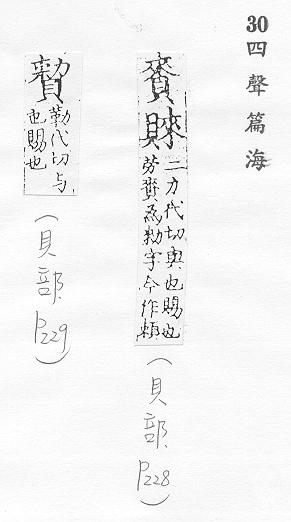 30四聲篇海
賚
二力代切與也賜也
勞賚為勑字今作頼
(貝部 P228)
勒代切与
也賜也
(貝部 P229)